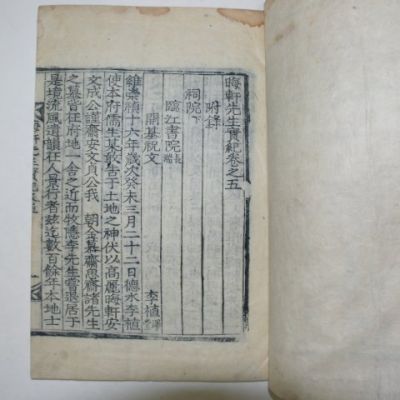 晦軒先生實紀卷之五
附錄
祠院下
臨江書院 長湍
開基祝文 李植 澤堂
維崇禎十六年歲次癸未三月二十二日德水李植
使本府儒生某敢告于土地之神伏以高麗晦軒安
文成公謹齋安文貞公我 朝金慕齋思齋諸先生
之墓皆在府地一舍之近而牧隱李先生嘗退居于
是境流風遺韻在人景行者玆迄數百餘年本地士